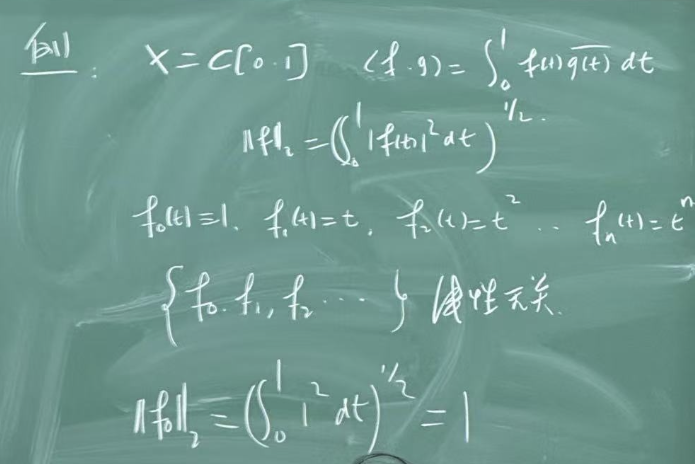 例: X=C[0.1] (f.g)=∫₀¹ f(t)\overline{g(t)} dt
‖f‖₂=(∫₀¹|f(t)|²dt)^{1/2}.
f₀(t)≡1. f₁(t)=t, f₂(t)=t² ‥ fₙ(t)=tⁿ
{f₀.f₁,f₂⋯} 线性无关.
‖f₀‖₂=(∫₀¹1²dt)^{1/2}=1